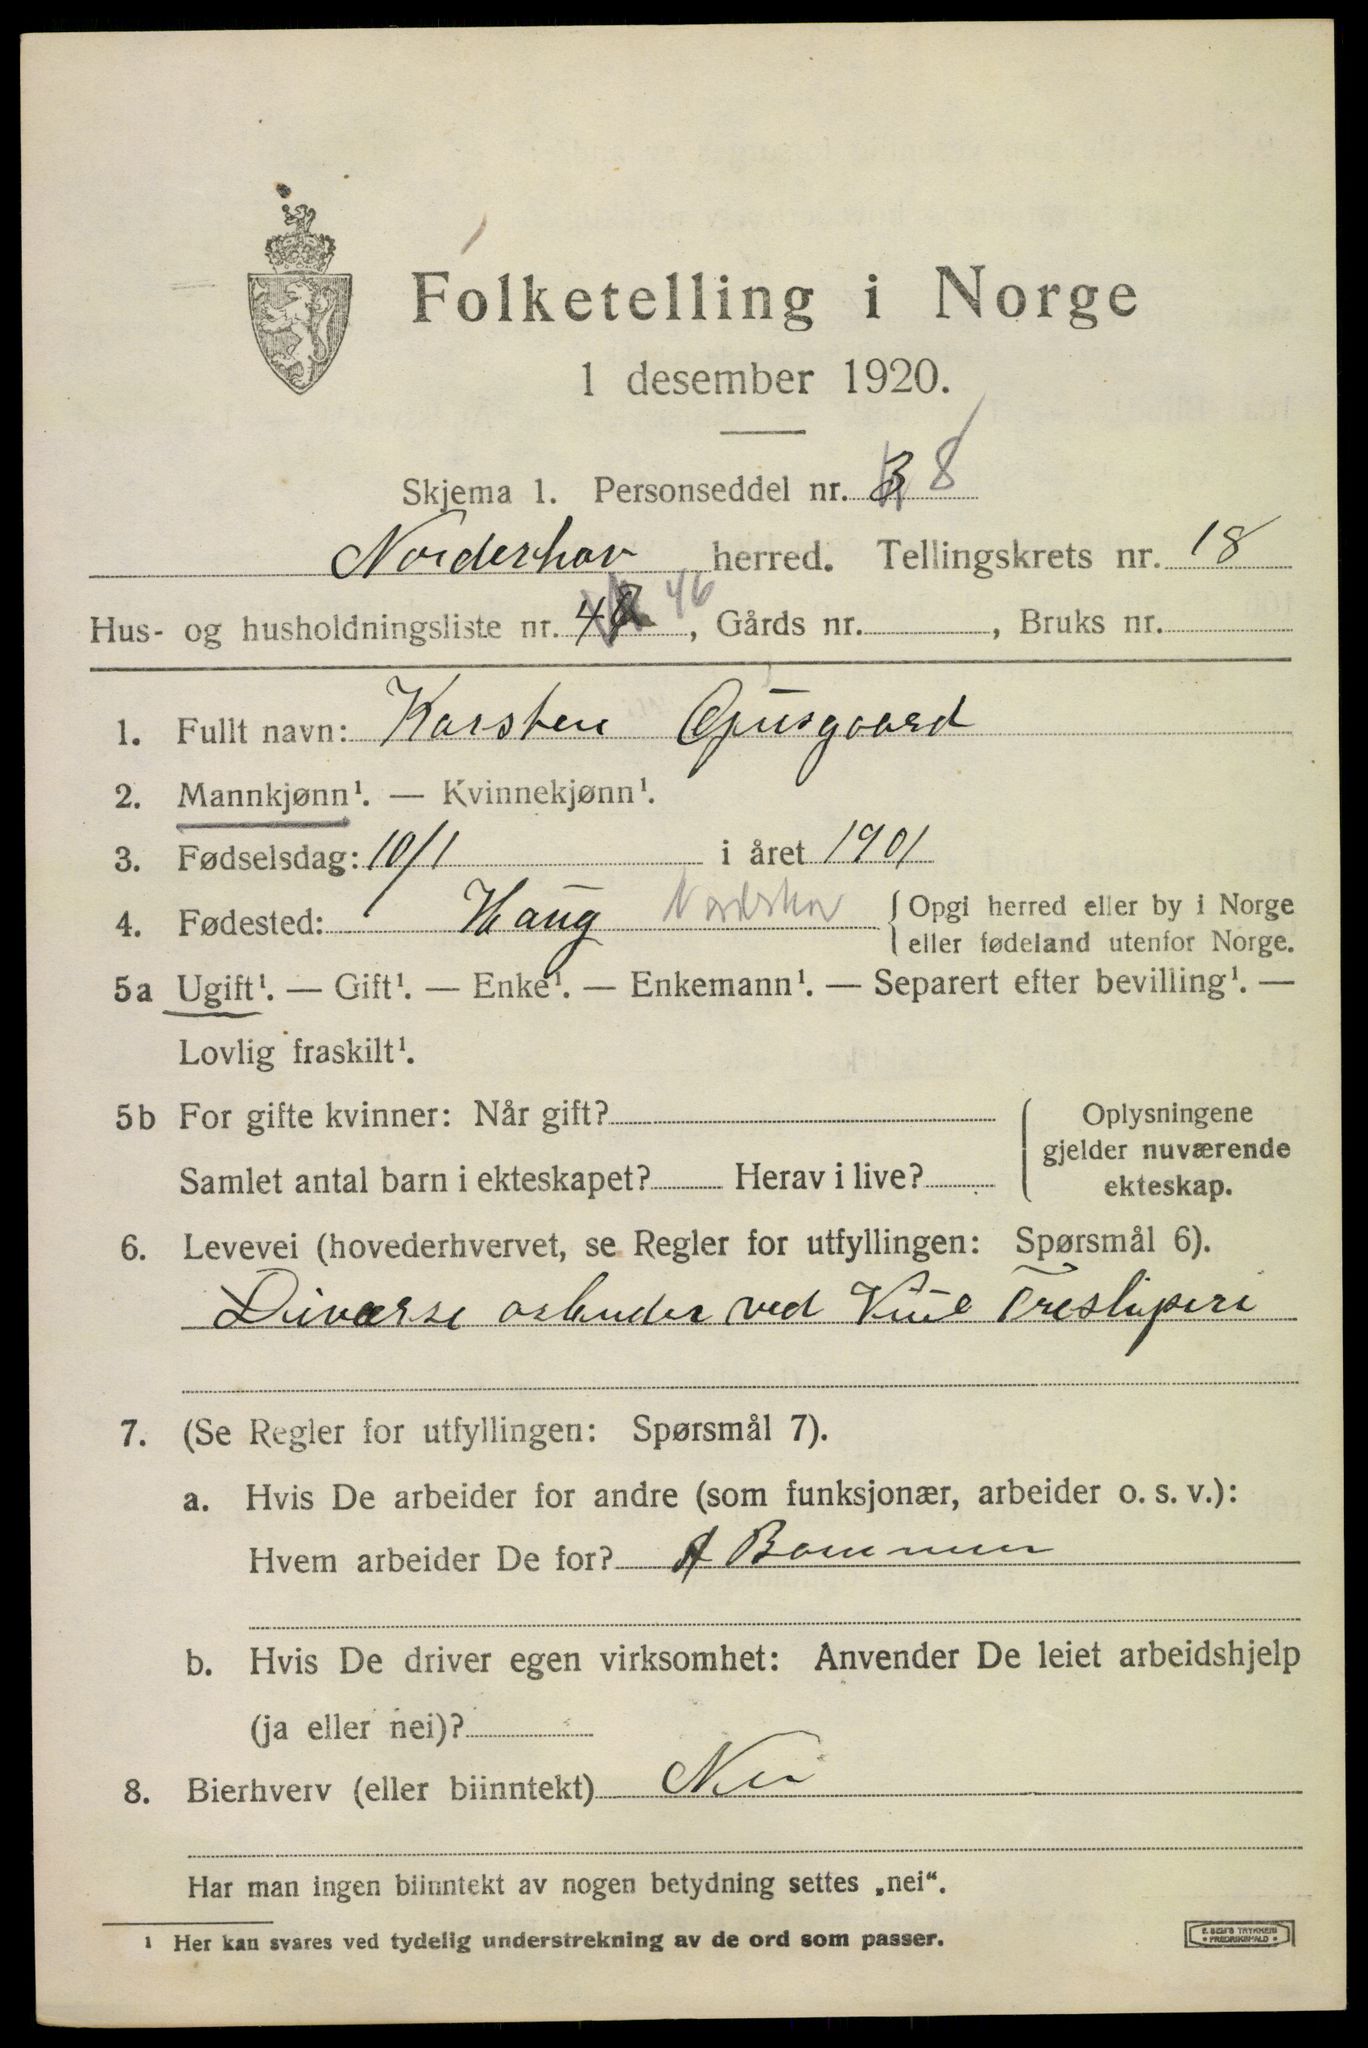 Folketelling i Norge
1 desember 1920.
Skjema 1. Personseddel nr. 8
Norderhov herred. Tellingskrets nr. 18
Hus- og husholdningsliste nr. 46, Gårds nr. , Bruks nr.
1. Fullt navn: Karsten Opusgaard
2. Mannkjønn¹. — Kvinnekjønn¹.
3. Fødselsdag: 10/1 i året 1901
4. Fødested: Haug Norderhov { Opgi herred eller by i Norge
eller fødeland utenfor Norge.
5a Ugift¹. — Gift¹. — Enke¹. — Enkemann¹. — Separert efter bevilling¹. —
Lovlig fraskilt¹.
5b For gifte kvinner: Når gift?
Samlet antal barn i ekteskapet? Herav i live?
Oplysningene
gjelder nuværende
ekteskap.
6. Levevei (hovederhvervet, se Regler for utfyllingen: Spørsmål 6).
Diverse arbeider ved Tresliperi
7. (Se Regler for utfyllingen: Spørsmål 7).
a. Hvis De arbeider for andre (som funksjonær, arbeider o. s. v.):
Hvem arbeider De for? A
b. Hvis De driver egen virksomhet: Anvender De leiet arbeidshjelp
(ja eller nei)?
8. Bierhverv (eller biinntekt) Nei
Har man ingen biinntekt av nogen betydning settes „nei“.
¹ Her kan svares ved tydelig understrekning av de ord som passer.
E. SEM'S TRYKKERI
FREDRIKSHALD